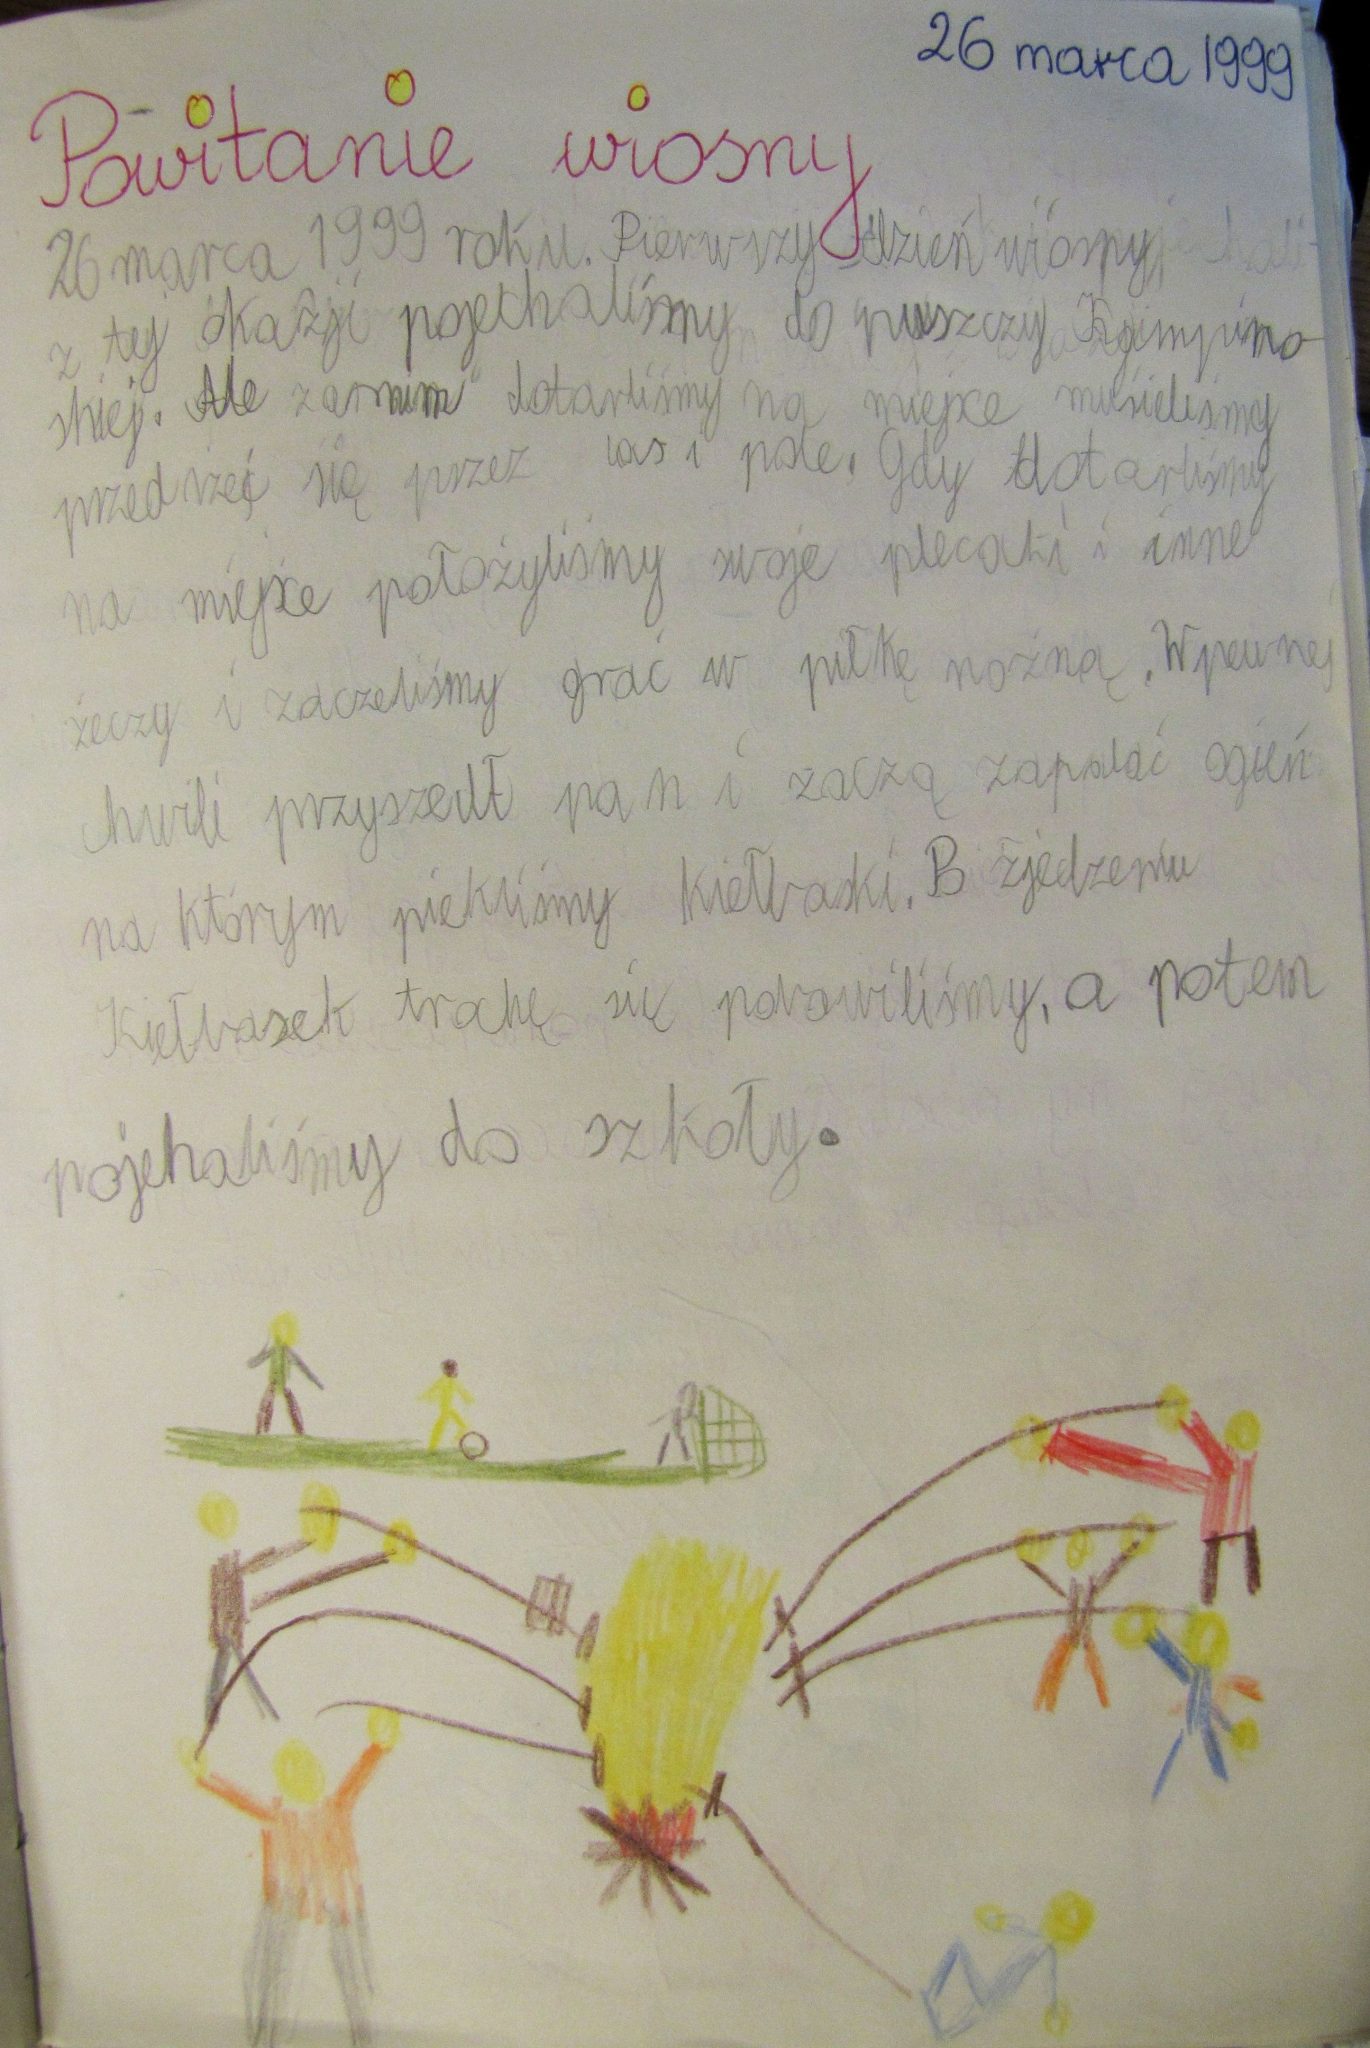 26 marca 1999
Powitanie wiosny
26 marca 1999 roku. Pierwszy dzień wiosny,
z tej okazji pojechaliśmy do puszczy Kampino-
skiej. Ale zanim dotarliśmy na miejxe musieliśmy
przedrzeć się przez las i pole. Gdy dotarliśmy
na miejxe położyliśmy swoje plecaki i inne
żeczy i zaczeliśmy grać w piłkę nożną. W pewnej
chwili przyszedł pan i zaczą zapalać ogień
na którym piekliśmy kiełbaski. Po zjedzeniu
kiełbasek trohę się pobawiliśmy, a potem
pojehaliśmy do szkoły.